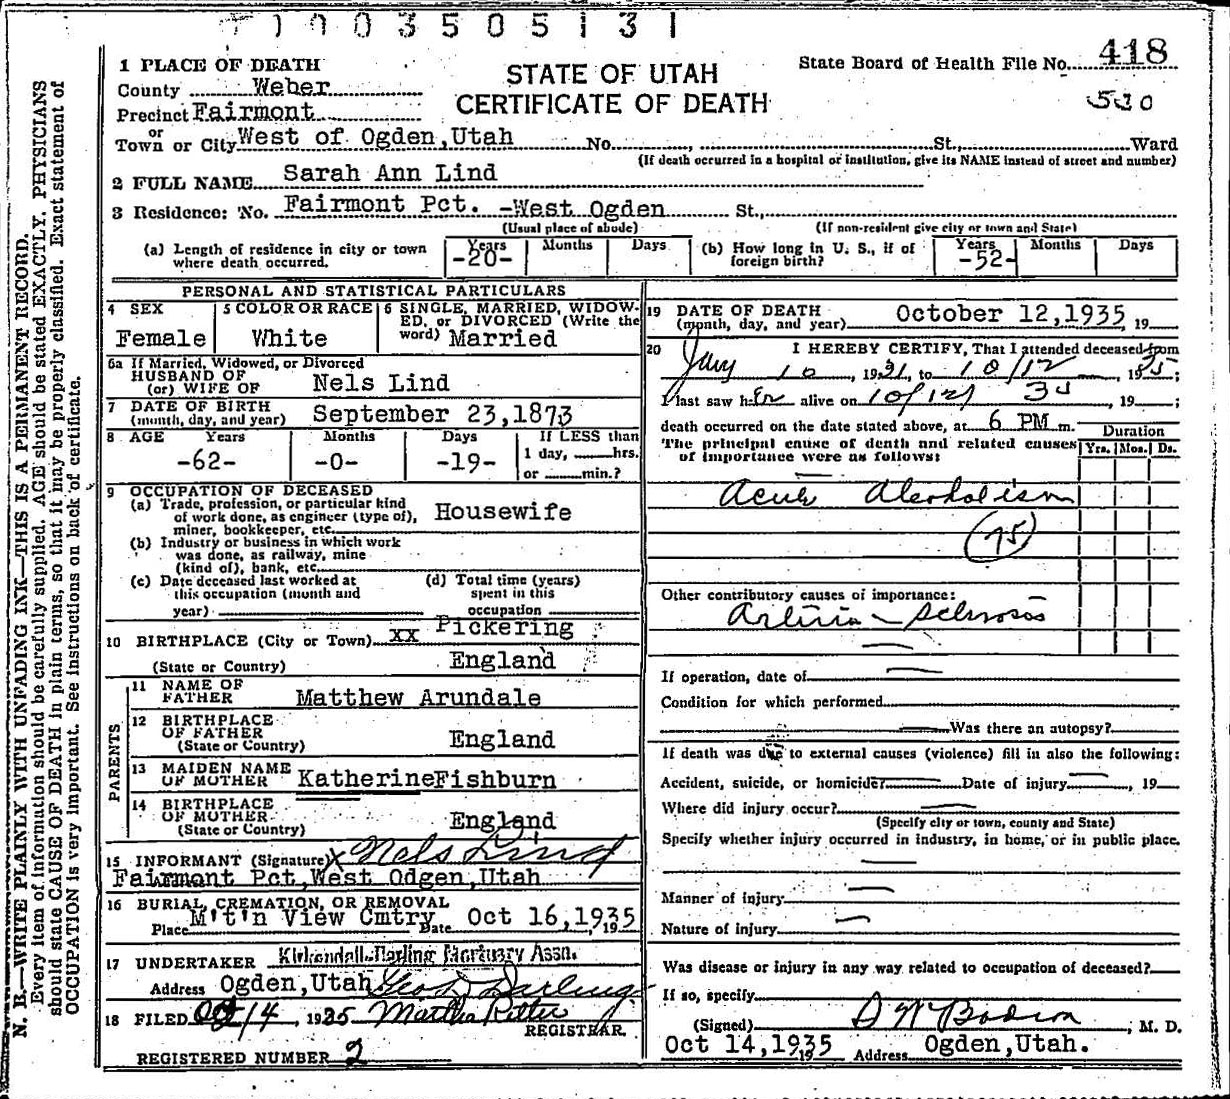 1003505131
418
530
State Board of Health File No.
STATE OF UTAH
CERTIFICATE OF DEATH
1 PLACE OF DEATH
County Weber
Precinct Fairmont
or
Town or City West of Ogden,Utah No. , St., Ward
(If death occurred in a hospital or institution, give its NAME instead of street and number)
2 FULL NAME Sarah Ann Lind
3 Residence: No. Fairmont Pct. -West Ogden St.,
(Usual place of abode) (If non-resident give city or town and State)
(a) Length of residence in city or town where death occurred. Years -20- Months Days (b) How long in U. S., if of foreign birth? Years -52- Months Days
PERSONAL AND STATISTICAL PARTICULARS
4 SEX Female
5 COLOR OR RACE White
6 SINGLE, MARRIED, WIDOW-
ED, or DIVORCED (Write the
word) Married
6a If Married, Widowed, or Divorced
HUSBAND OF
(or) WIFE OF Nels Lind
7 DATE OF BIRTH
(month, day, and year) September 23,1873
8 AGE Years Months Days If LESS than
-62- -0- -19- 1 day, hrs.
or min.?
9 OCCUPATION OF DECEASED
(a) Trade, profession, or particular kind
of work done, as engineer (type of),
miner, bookkeeper, etc. Housewife
(b) Industry or business in which work
was done, as railway, mine
(kind of), bank, etc.
(c) Date deceased last worked at
this occupation (month and
year)
(d) Total time (years)
spent in this
occupation
10 BIRTHPLACE (City or Town) xx Pickering
(State or Country) England
PARENTS
11 NAME OF
FATHER Matthew Arundale
12 BIRTHPLACE
OF FATHER
(State or Country) England
13 MAIDEN NAME
OF MOTHER KatherineFishburn
14 BIRTHPLACE
OF MOTHER
(State or Country) England
15 INFORMANT (Signature) x Nels Lind
Fairmont Pct,West Odgen,Utah
16 BURIAL, CREMATION, OR REMOVAL
Place M't'n View Cmtry Date Oct 16,1935, 19
17 UNDERTAKER Kirkendall-Darling Mortuary Assn.
Address Ogden,Utah Geo D Darling
18 FILED Oct 14, 1935 Martha Ritter
REGISTRAR.
REGISTERED NUMBER 2
19 DATE OF DEATH
(month, day, and year) October 12,1935, 19
20 I HEREBY CERTIFY, That I attended deceased from
Jany 10, 1931, to 10/12, 1935;
I last saw her alive on 10/12/ 35, 19 ;
death occurred on the date stated above, at 6 PM m.
Duration
The principal cause of death and related causes
of importance were as follows: Yrs. Mos. Ds.
Acute Alcoholism
(75)
Other contributory causes of importance:
Arterio-Sclerosis
If operation, date of
Condition for which performed
Was there an autopsy?
If death was due to external causes (violence) fill in also the following:
Accident, suicide, or homicide? Date of injury , 19
Where did injury occur?
(Specify city or town, county and State)
Specify whether injury occurred in industry, in home, or in public place.
Manner of injury
Nature of injury
Was disease or injury in any way related to occupation of deceased?
If so, specify
(Signed) , M. D.
Oct 14,1935 19 Address Ogden,Utah.
N. B.—WRITE PLAINLY WITH UNFADING INK—THIS IS A PERMANENT RECORD.
Every item of information should be carefully supplied. AGE should be stated EXACTLY. PHYSICIANS
should state CAUSE OF DEATH in plain terms, so that it may be properly classified. Exact statement of
OCCUPATION is very important. See instructions on back of certificate.